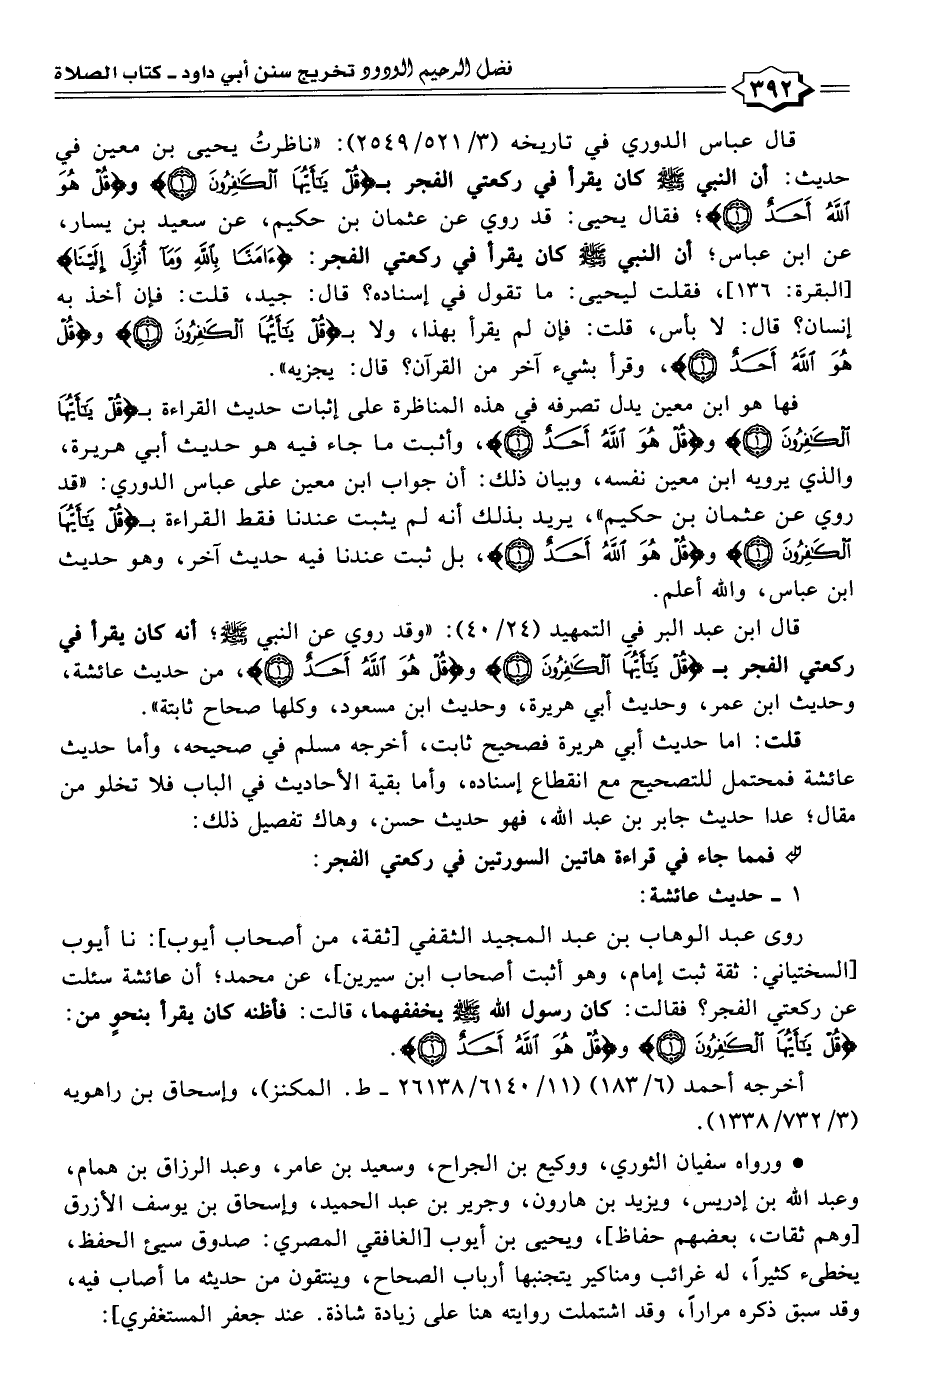 فضل الرحيم الودود تخريج سنن أبي داود - كتاب الصلاة
٣٩٢
قال عباس الدوري في تاريخه (٣/ ٥٢١/ ٢٥٤٩): «ناظرتُ يحيى بن معين في
حديث: أن النبي ﷺ كان يقرأ في ركعتي الفجر بـ﴿قُلْ يَٰٓأَيُّهَا ٱلْكَٰفِرُونَ ١﴾ و﴿قُلْ هُوَ
ٱللَّهُ أَحَدٌ ١﴾؛ فقال يحيى: قد روي عن عثمان بن حكيم، عن سعيد بن يسار،
عن ابن عباس؛ أن النبي ﷺ كان يقرأ في ركعتي الفجر: ﴿ءَامَنَّا بِٱللَّهِ وَمَآ أُنزِلَ إِلَيْنَا﴾
[البقرة: ١٣٦]، فقلت ليحيى: ما تقول في إسناده؟ قال: جيد، قلت: فإن أخذ به
إنسان؟ قال: لا بأس، قلت: فإن لم يقرأ بهذا، ولا بـ﴿قُلْ يَٰٓأَيُّهَا ٱلْكَٰفِرُونَ ١﴾ و﴿قُلْ
هُوَ ٱللَّهُ أَحَدٌ ١﴾، وقرأ بشيء آخر من القرآن؟ قال: يجزيه».
فها هو ابن معين يدل تصرفه في هذه المناظرة على إثبات حديث القراءة بـ﴿قُلْ يَٰٓأَيُّهَا
ٱلْكَٰفِرُونَ ١﴾ و﴿قُلْ هُوَ ٱللَّهُ أَحَدٌ ١﴾، وأثبت ما جاء فيه هو حديث أبي هريرة،
والذي يرويه ابن معين نفسه، وبيان ذلك: أن جواب ابن معين على عباس الدوري: «قد
روي عن عثمان بن حكيم»، يريد بذلك أنه لم يثبت عندنا فقط القراءة بـ﴿قُلْ يَٰٓأَيُّهَا
ٱلْكَٰفِرُونَ ١﴾ و﴿قُلْ هُوَ ٱللَّهُ أَحَدٌ ١﴾، بل ثبت عندنا فيه حديث آخر، وهو حديث
ابن عباس، والله أعلم.
قال ابن عبد البر في التمهيد (٢٤/ ٤٠): «وقد روي عن النبي ﷺ؛ أنه كان يقرأ في
ركعتي الفجر بـ ﴿قُلْ يَٰٓأَيُّهَا ٱلْكَٰفِرُونَ ١﴾ و﴿قُلْ هُوَ ٱللَّهُ أَحَدٌ ١﴾، من حديث عائشة،
وحديث ابن عمر، وحديث أبي هريرة، وحديث ابن مسعود، وكلها صحاح ثابتة».
قلت: اما حديث أبي هريرة فصحيح ثابت، أخرجه مسلم في صحيحه، وأما حديث
عائشة فمحتمل للتصحيح مع انقطاع إسناده، وأما بقية الأحاديث في الباب فلا تخلو من
مقال؛ عدا حديث جابر بن عبد الله، فهو حديث حسن، وهاك تفصيل ذلك:
فمما جاء في قراءة هاتين السورتين في ركعتي الفجر:
١ - حديث عائشة:
روى عبد الوهاب بن عبد المجيد الثقفي [ثقة، من أصحاب أيوب]: نا أيوب
[السختياني: ثقة ثبت إمام، وهو أثبت أصحاب ابن سيرين]، عن محمد؛ أن عائشة سئلت
عن ركعتي الفجر؟ فقالت: كان رسول الله ﷺ يخففهما، قالت: فأظنه كان يقرأ بنحوٍ من:
﴿قُلْ يَٰٓأَيُّهَا ٱلْكَٰفِرُونَ ١﴾ و﴿قُلْ هُوَ ٱللَّهُ أَحَدٌ ١﴾.
أخرجه أحمد (٦/ ١٨٣) (١١/ ٦١٤٠/ ٢٦١٣٨ - ط. المكنز)، وإسحاق بن راهويه
(٣/ ٧٣٢/ ١٣٣٨).
• ورواه سفيان الثوري، ووكيع بن الجراح، وسعيد بن عامر، وعبد الرزاق بن همام،
وعبد الله بن إدريس، ويزيد بن هارون، وجرير بن عبد الحميد، وإسحاق بن يوسف الأزرق
[وهم ثقات، بعضهم حفاظ]، ويحيى بن أيوب [الغافقي المصري: صدوق سيئ الحفظ،
يخطىء كثيراً، له غرائب ومناكير يتجنبها أرباب الصحاح، وينتقون من حديثه ما أصاب فيه،
وقد سبق ذكره مراراً، وقد اشتملت روايته هنا على زيادة شاذة. عند جعفر المستغفري]: